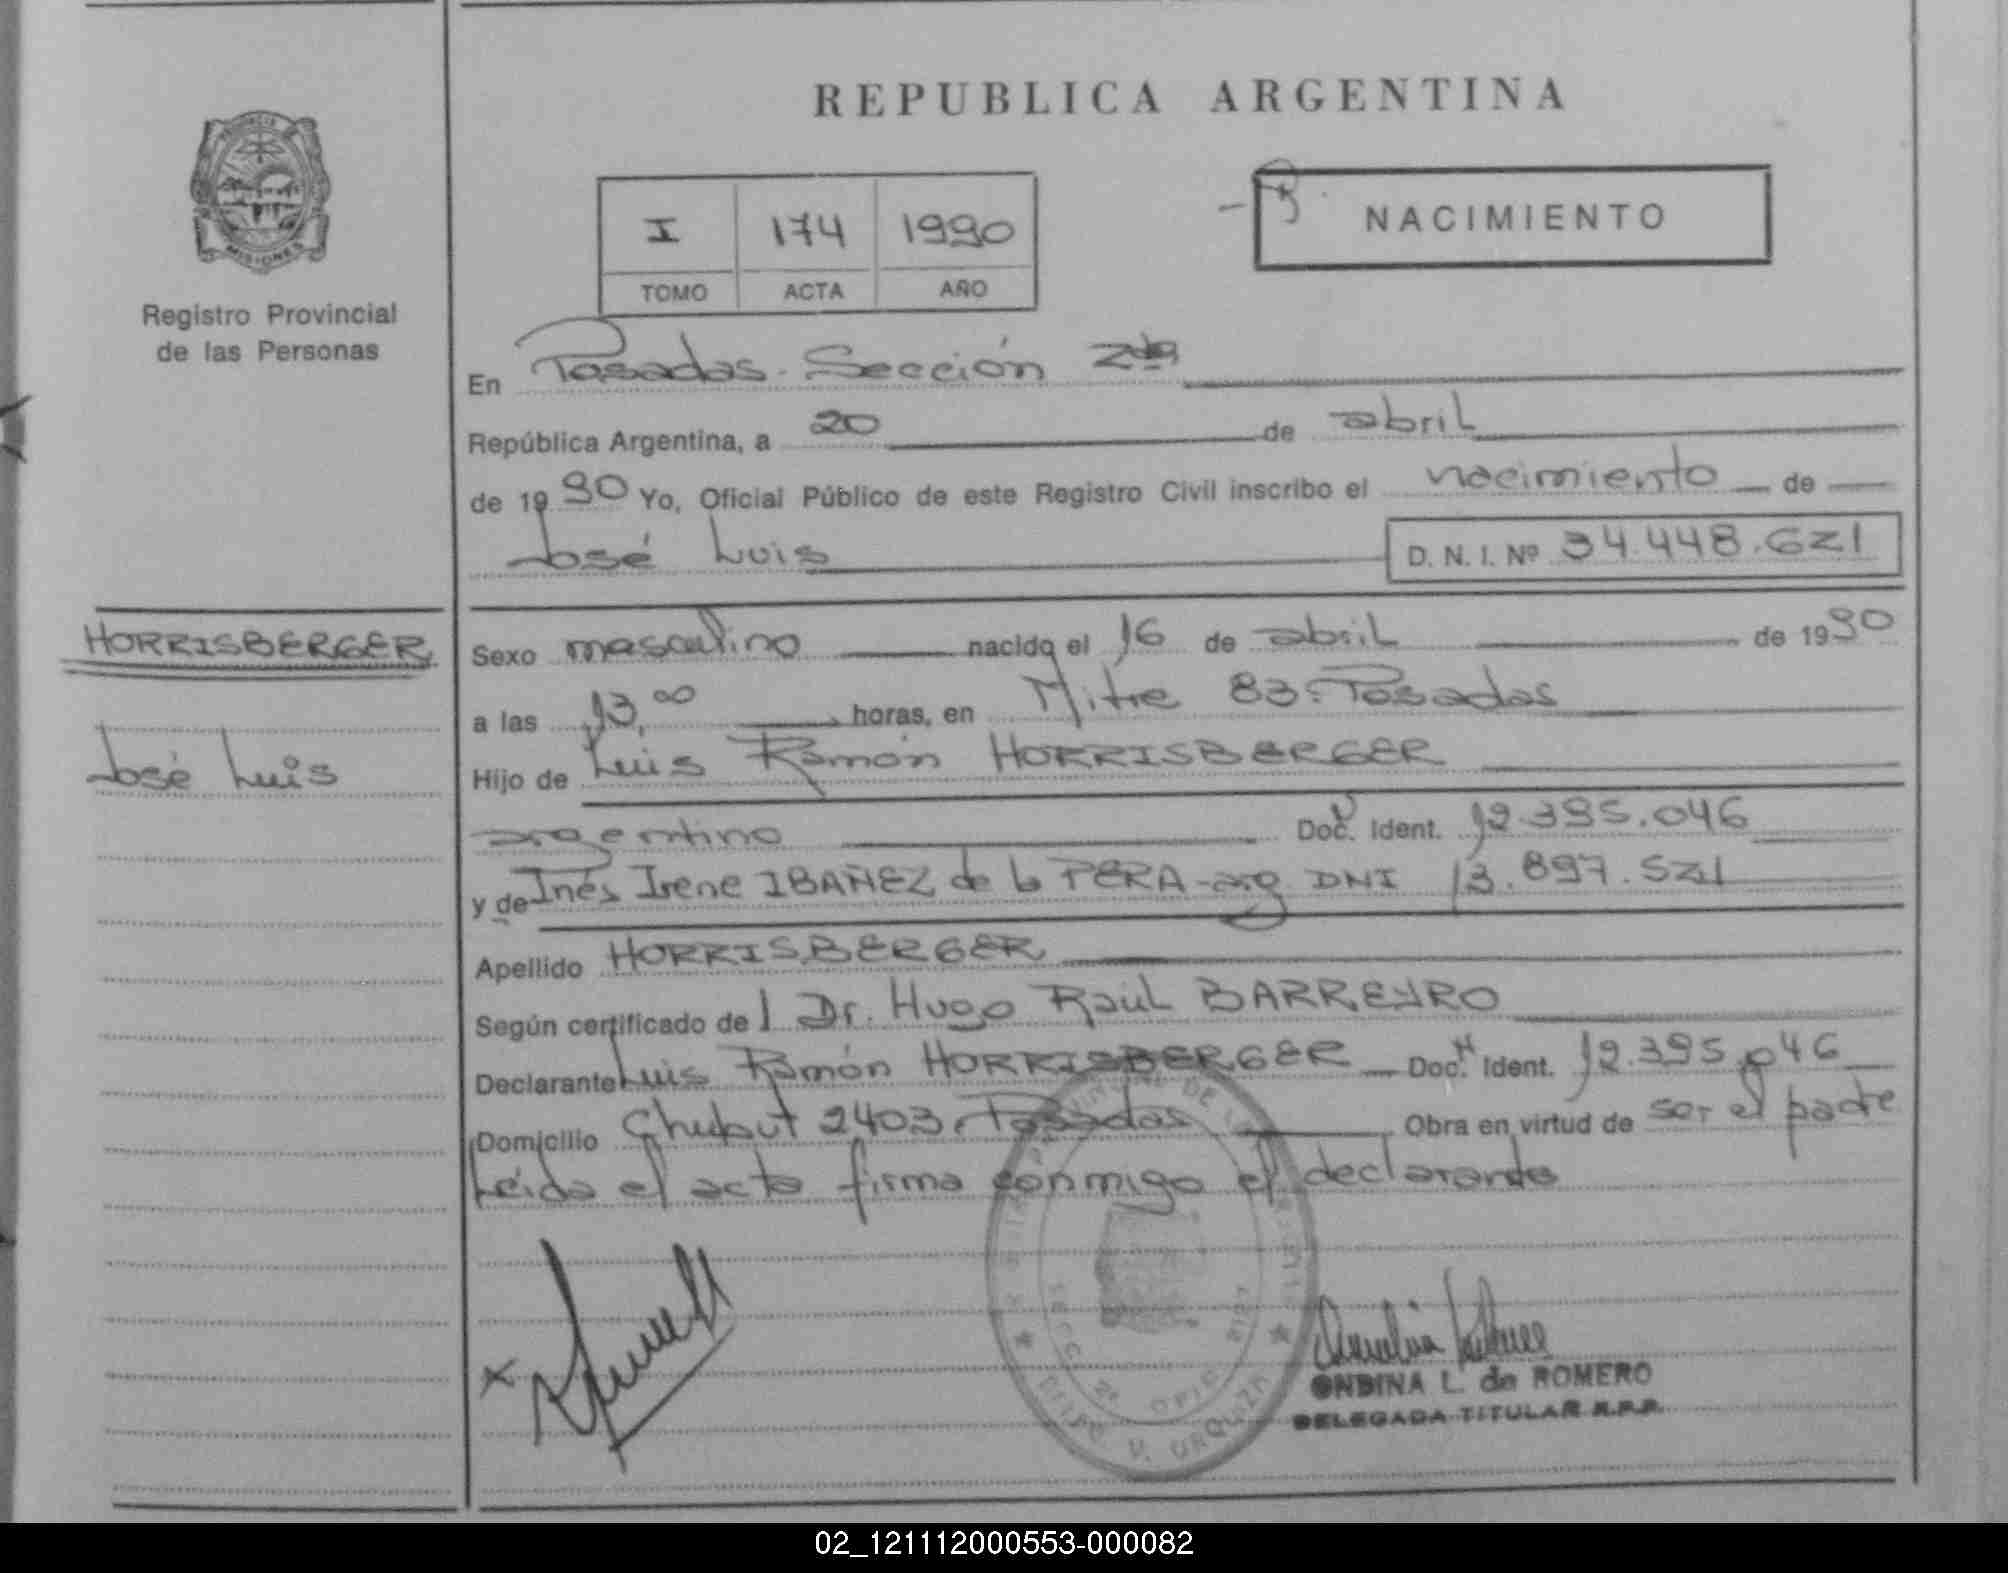 REPUBLICA ARGENTINA
PROVINCIA DE
MISIONES
Registro Provincial
de las Personas
I 174 1990
TOMO ACTA AÑO
NACIMIENTO
En Posadas. Sección 2da
República Argentina, a 20 de abril
de 1990 Yo, Oficial Público de este Registro Civil inscribo el nacimiento de
José Luis D. N. I. Nº 34.448.621
HORRISBERGER
José Luis
Sexo masculino nacido el 16 de abril de 1990
a las 13,00 horas, en Mitre 83-Posadas
Hijo de Luis Ramón HORRISBERGER
argentino Doc. Ident. 12.395.046
y de Inés Irene IBAÑEZ de la PERA-arg. DNI 13.897.521
Apellido HORRISBERGER
Según certificado de l Dr. Hugo Raúl BARREYRO
Declarante Luis Ramón HORRISBERGER Doc. Ident. 12.395.046
Domicilio Chubut 2403. Posadas Obra en virtud de ser el padre
Leída el acta firma conmigo el declarante
ONDINA L. de ROMERO
DELEGADA TITULAR R.P.P.
SECC. 2ª OFIC.
VILLA U. URQUIZA
02_121112000553-000082